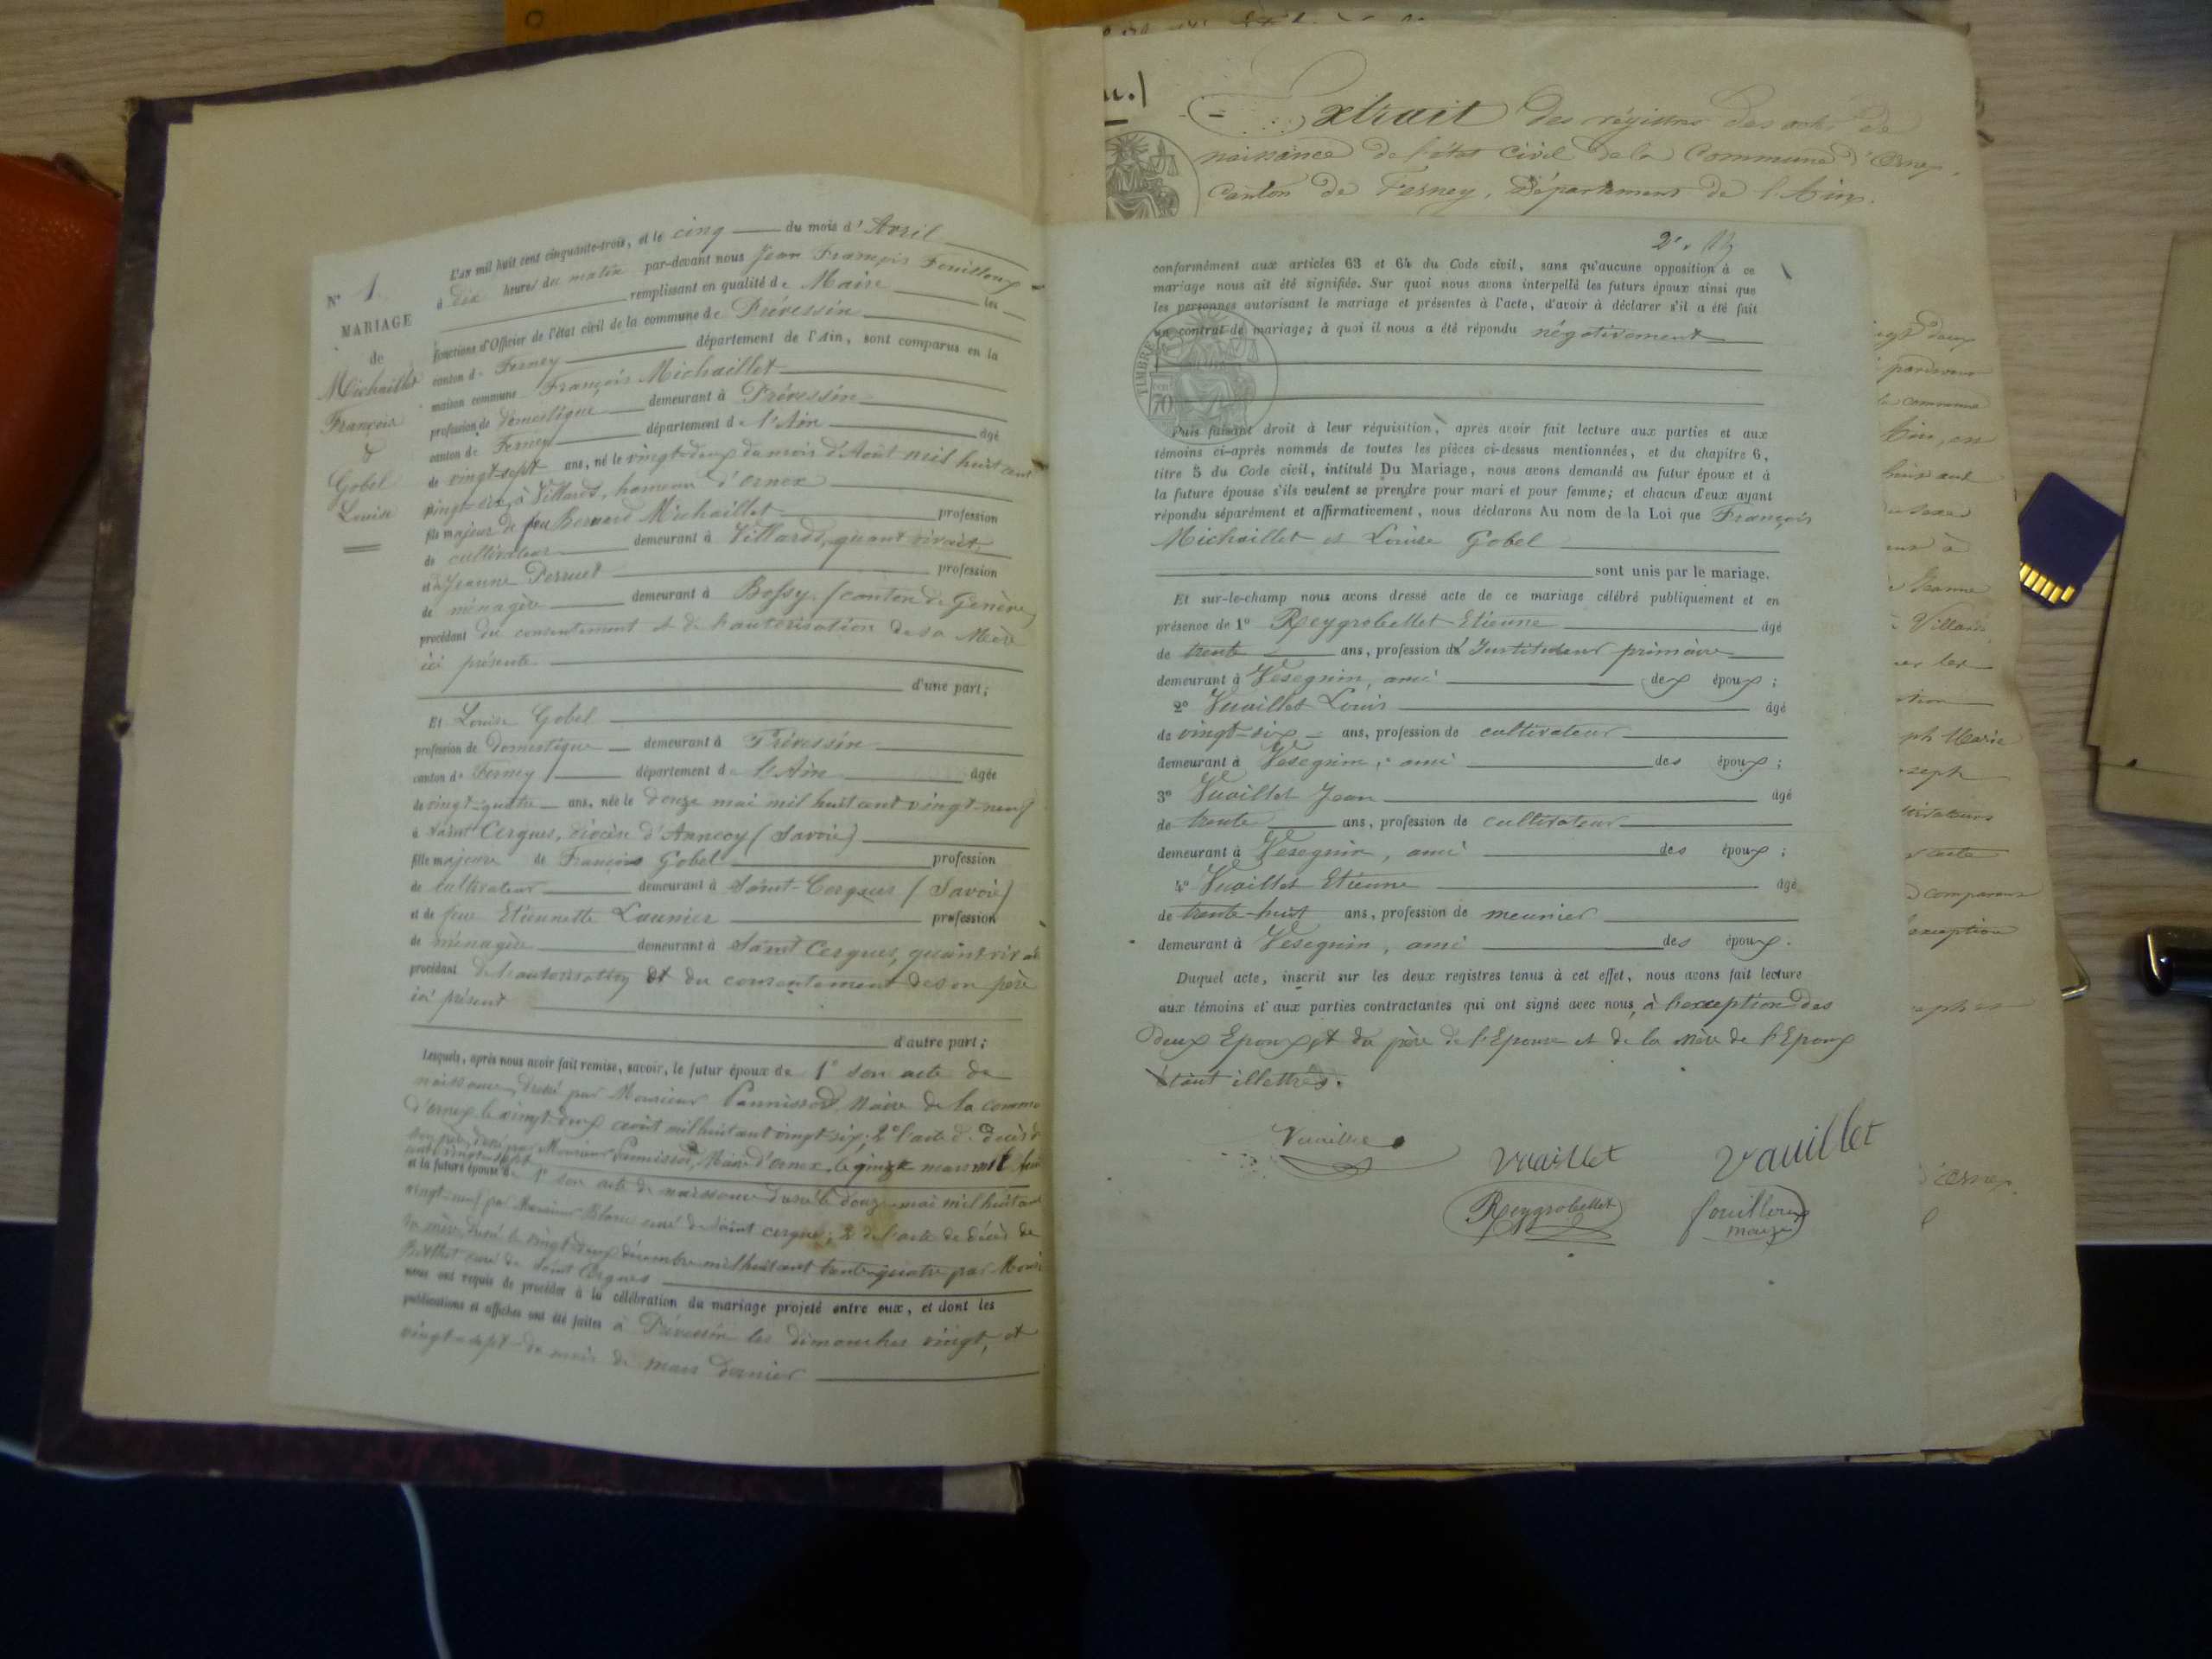 N° 1.
MARIAGE
de
Michaillet
François
&
Gobel
Louise
L'an mil huit cent cinquante-trois, et le cinq du mois d'Avril
à dix heures du matin par-devant nous Jean François Fouilloux
remplissant en qualité de Maire les
fonctions d'Officier de l'état civil de la commune de Prévessin
canton de Ferney département de l'Ain, sont comparus en la
maison commune François Michaillet
profession de domestique demeurant à Prévessin
canton de Ferney département de l'Ain âgé
de vingt-sept ans, né le vingt-deux du mois d'Août mil huit cent
vingt-six, à Villard, hameau d'ornex
fils majeur de feu Bernard Michaillet profession
de cultivateur demeurant à Villard, quant vivait,
et de Jeanne Perruet profession
de ménagère demeurant à Bossy (canton de Genève)
procédant du consentement et de l'autorisation de sa Mère
ici présente
d'une part;
Et Louise Gobel
profession de domestique demeurant à Prévessin
canton de Ferney département de l'Ain âgée
de vingt-quatre ans, née le douze mai mil huit cent vingt-neuf
à Saint Cergues, diocèse d'Annecy (Savoie)
fille majeure de François Gobel profession
de cultivateur demeurant à Saint-Cergues (Savoie)
et de feue Etiennette Launier profession
de ménagère demeurant à Saint Cergues, quant viv
procédant de l'autorisation et du consentement de son père
ici présent
d'autre part;
Lesquels, après nous avoir fait remise, savoir, le futur époux de 1° son acte de
naissance, dressé par Monsieur Pannissod Maire de la commu
d'ornex le vingt-deux août mil huit cent vingt six; 2° l'acte de décès d
son père, dressé par Monsieur Pannissod, Maire d'ornex, le quinze mars mil huit
cent vingt-sept
et la future épouse de 1° son acte de naissance dressé le douze mai mil huit cent
vingt-neuf par Monsieur Blanc curé de Saint cergues; 2° de l'acte de décès de
sa mère, dressé le vingt-deux décembre mil huit cent trente-quatre par Monsi
Berthet curé de Saint Cergues
nous ont requis de procéder à la célébration du mariage projeté entre eux, et dont les
publications et affiches ont été faites à Prévessin les dimanches vingt, et
vingt-sept du mois de mars dernier
Extrait des régistres des actes de
naissance de l'état civil de la Commune d'Ornex,
Canton de Ferney, Département de l'Ain.
conformément aux articles 63 et 64 du Code civil, sans qu'aucune opposition à ce
mariage nous ait été signifiée. Sur quoi nous avons interpellé les futurs époux ainsi que
les personnes autorisant le mariage et présentes à l'acte, d'avoir à déclarer s'il a été fait
un contrat de mariage; à quoi il nous a été répondu négativement
TIMBRE
70
Puis faisant droit à leur réquisition, après avoir fait lecture aux parties et aux
témoins ci-après nommés de toutes les pièces ci-dessus mentionnées, et du chapitre 6,
titre 5 du Code civil, intitulé Du Mariage, nous avons demandé au futur époux et à
la future épouse s'ils veulent se prendre pour mari et pour femme; et chacun d'eux ayant
répondu séparément et affirmativement, nous déclarons Au nom de la Loi que François
Michaillet et Louise Gobel
sont unis par le mariage.
Et sur-le-champ nous avons dressé acte de ce mariage célébré publiquement et en
présence de 1° Reygrobellet Etienne âgé
de trente ans, profession d'Instituteur primaire
demeurant à Vesegnin, ami des époux;
2° Vuaillet Louis âgé
de vingt-six ans, profession de cultivateur
demeurant à Vesegnin, ami des époux;
3° Vuaillet Jean âgé
de trente ans, profession de cultivateur
demeurant à Vesegnin, ami des époux;
4° Vuaillet Etienne âgé
de trente-huit ans, profession de meunier
demeurant à Vesegnin, ami des époux.
Duquel acte, inscrit sur les deux registres tenus à cet effet, nous avons fait lecture
aux témoins et aux parties contractantes qui ont signé avec nous, à l'exception des
deux Epoux, et du père de l'Epouse et de la mère de l'Epoux
étant illettrés.
Vuaillet
Vuaillet
Vauillet
Reygrobellet
fouilloux
maire